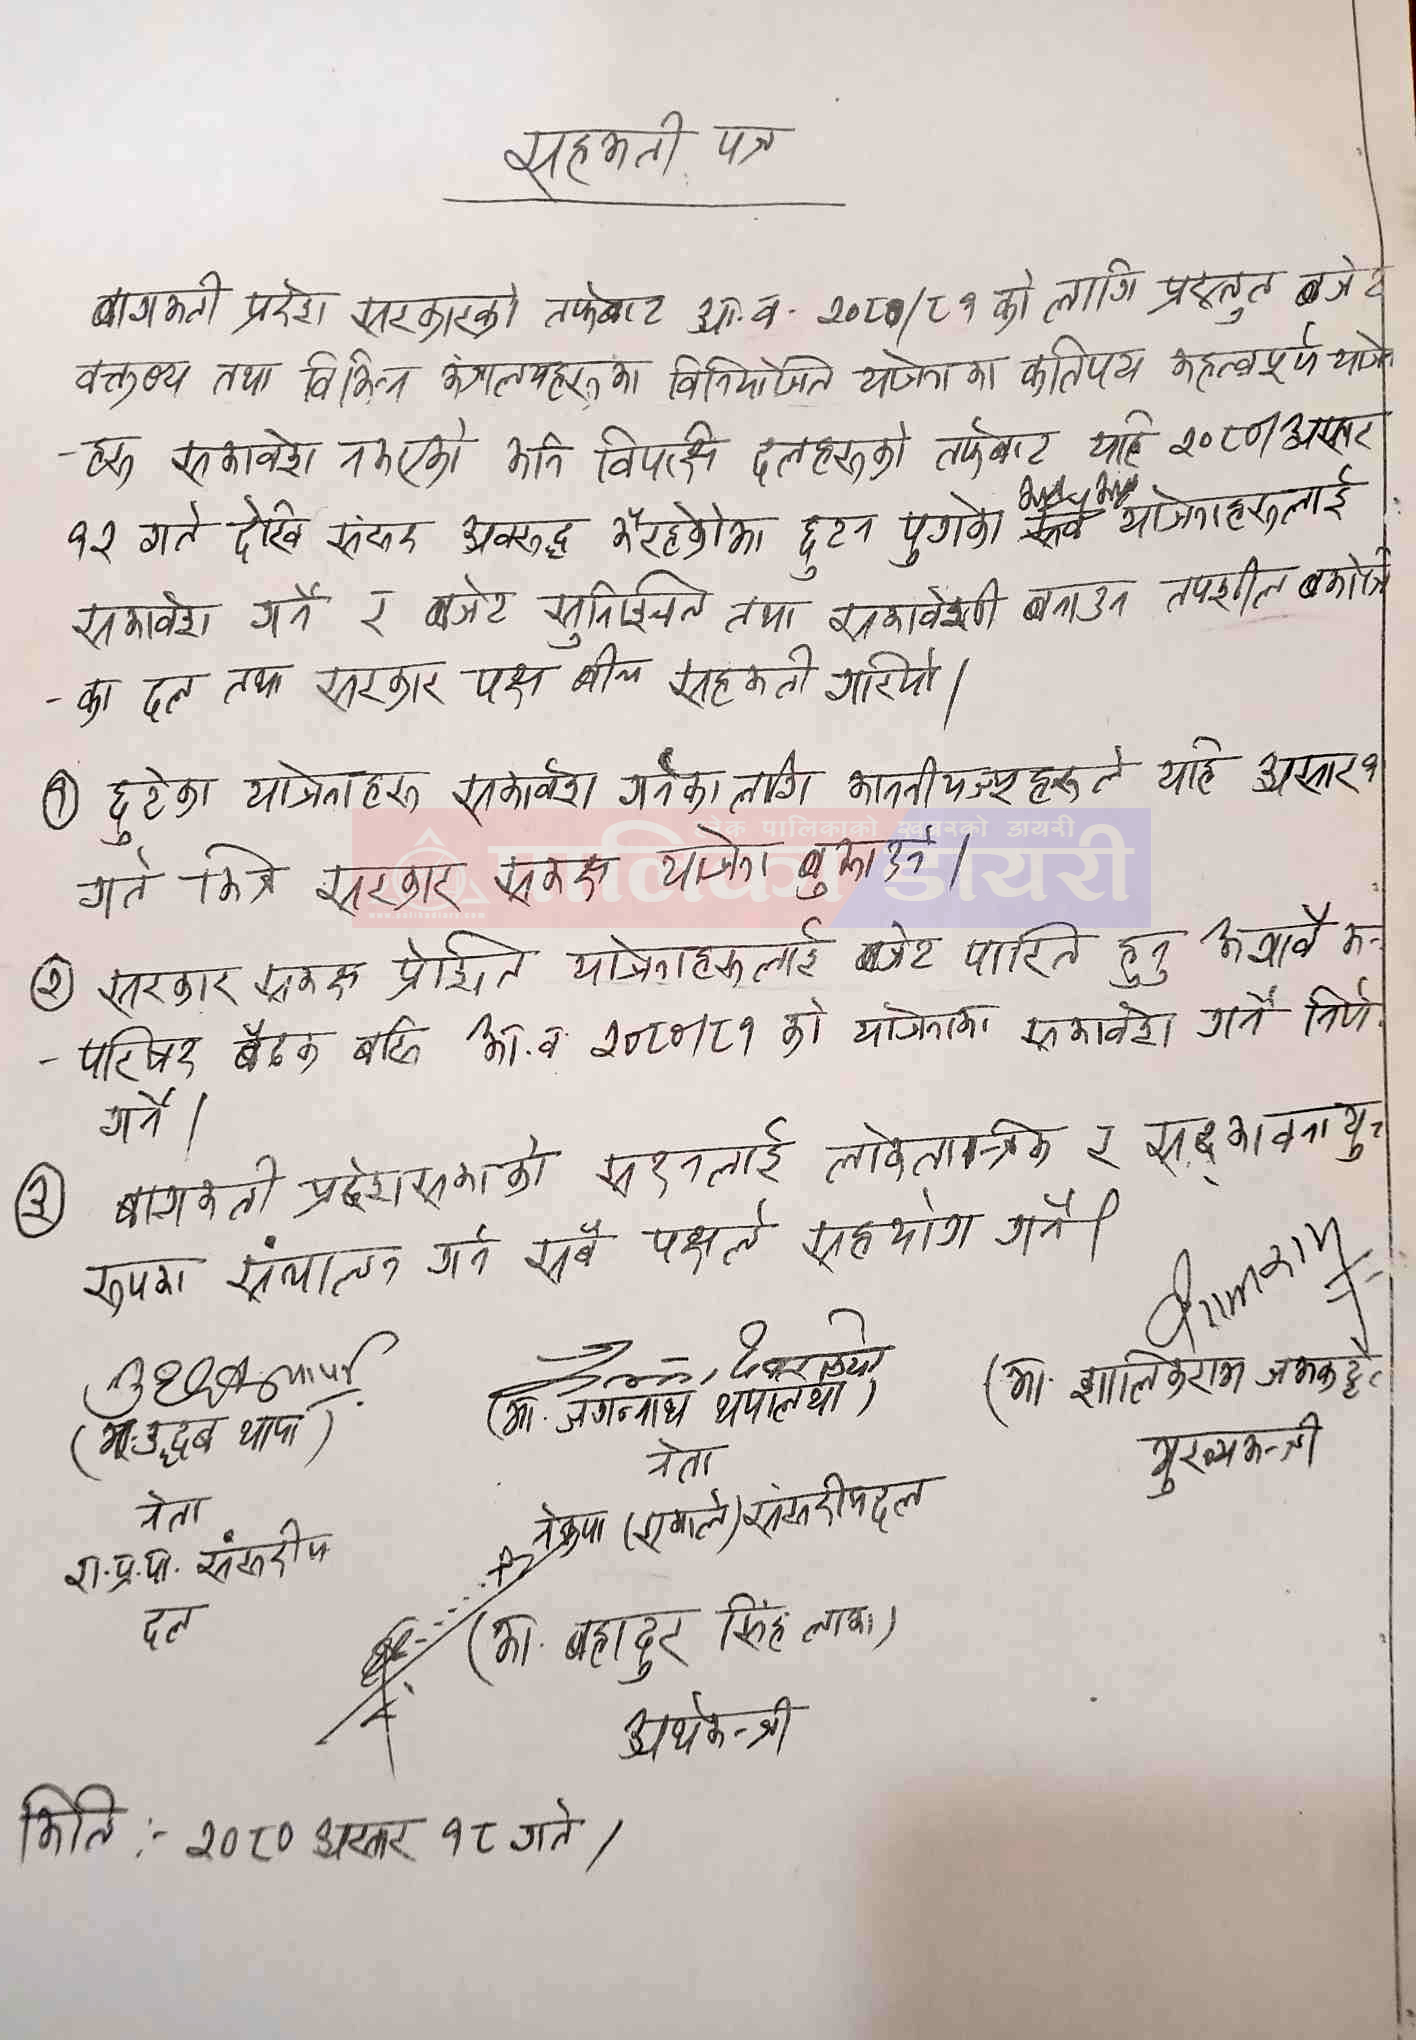 सहमती पत्र
बागमती प्रदेश सरकारको तर्फबाट आ.व. २०८०/८१ को लागि प्रस्तुत बजेट
वक्तव्य तथा विभिन्न मंत्रालयहरूका विनियोजित योजनामा कतिपय महत्वपूर्ण योजना
-हरू समावेश नभएको भनि विपक्षि दलहरूको तर्फबाट यहि २०८०/असार
१२ गते देखि संसद अवरुद्ध भैरहेकोमा छुटन पुगेका योजनाहरूलाई
समावेश गर्ने र बजेट सुनिश्चित तथा समावेशी बनाउन तपशील बमोजि
-का दल तथा सरकार पक्ष बीच सहमती गरियो।
① छुटेका योजनाहरू समावेश गर्नका लागि माननीयज्यूहरूले यहि असार
लेक पालिकाको खबरको डायरी
पालिका डायरी
गते भित्र सरकार समक्ष योजना बुझाउने।
② सरकार समक्ष प्रेषित योजनाहरूलाई बजेट पारित हुनु अगावै म-
-परिषद बैठक बसि आ.व. २०८०/८१ को योजनामा समावेश गर्ने निर्ण
गर्ने।
③ बागमती प्रदेशसभाको सदनलाई लोकतान्त्रिक र सद्भावनायु
रूपमा संचालन गर्न सबै पक्षले सहयोग गर्ने।
(मा. उद्धव थापा)
(मा. जगन्नाथ थपालिया)
(मा. शालिकराम जमकट्टेल
नेता
नेता
मुख्यमन्त्री
रा.प्र.पा. संसदीय
नेकपा (एमाले) संसदीयदल
दल
(मा. बहादुर सिंह लामा)
अर्थमन्त्री
मिति :- २०८० असार १८ गते।